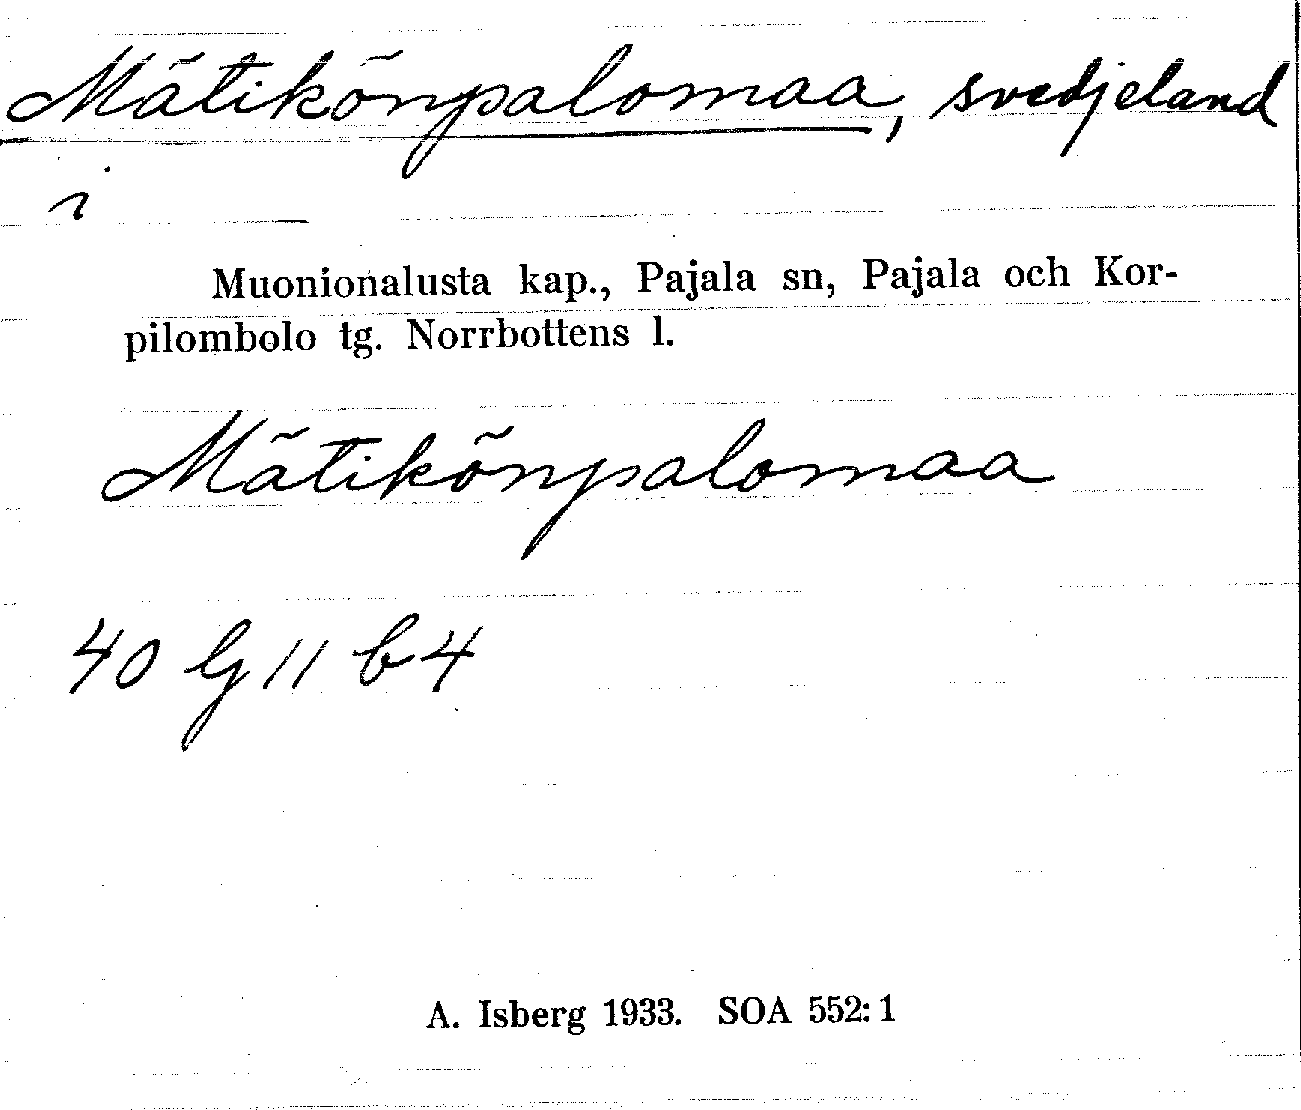 Mätikönpalomaa, svedjeland
i
Muonionalusta kap., Pajala sn, Pajala och Kor-
pilombolo tg. Norrbottens l.
Mätikönpalomaa
40 G 11 b 4
A. Isberg 1933. SOA 552:1